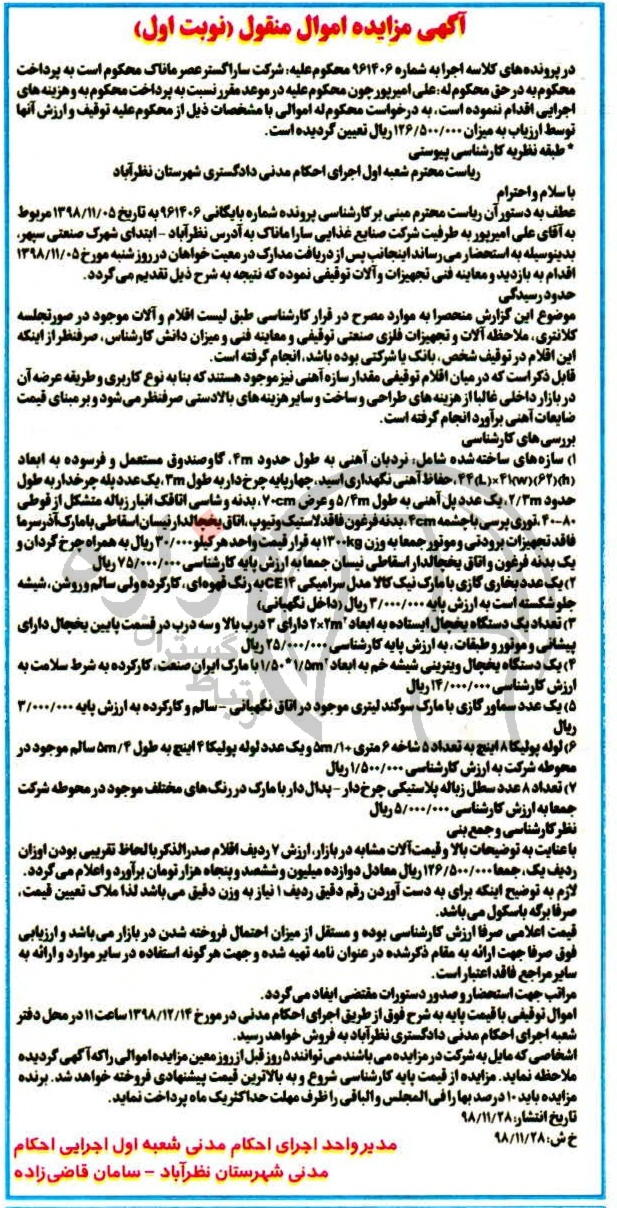 آگهی مزایده اموال منقول (نوبت اول)
در پرونده‌های کلاسه اجرا به شماره ۹۶۱۴۰۶ محکوم‌علیه: شرکت سارا گستر عصر ماناک محکوم است به پرداخت
محکوم به در حق محکوم له: علی امیرپور چون محکوم علیه در موعد مقرر نسبت به پرداخت محکوم به و هزینه های
اجرایی اقدام ننموده است، به درخواست محکوم له اموالی با مشخصات ذیل از محکوم علیه توقیف و ارزش آنها
توسط ارزیاب به میزان ۱۲۶/۵۰۰/۰۰۰ ریال تعیین گردیده است.
* طبقه نظریه کارشناسی پیوستی
ریاست محترم شعبه اول اجرای احکام مدنی دادگستری شهرستان نظرآباد
با سلام و احترام
عطف به دستور آن ریاست محترم مبنی بر کارشناسی پرونده شماره بایگانی ۹۶۱۴۰۶ به تاریخ ۱۳۹۸/۱۱/۰۵ مربوط
به آقای علی امیرپور به طرفیت شرکت صنایع غذایی سارا ماناک به آدرس نظرآباد - ابتدای شهرک صنعتی سپهر،
بدینوسیله به استحضار می رساند اینجانب پس از دریافت مدارک در معیت خواهان در روز شنبه مورخ ۱۳۹۸/۱۱/۰۵
اقدام به بازدید و معاینه فنی تجهیزات و آلات توقیفی نموده که نتیجه به شرح ذیل تقدیم می گردد.
حدود رسیدگی
موضوع این گزارش منحصرا به موارد مصرح در قرار کارشناسی طبق لیست اقلام و آلات موجود در صورتجلسه
کلانتری، ملاحظه آلات و تجهیزات فلزی صنعتی توقیفی و معاینه فنی و میزان دانش کارشناس، صرفنظر از اینکه
این اقلام در توقیف شخص، بانک یا شرکتی بوده باشد، انجام گرفته است.
قابل ذکر است که در میان اقلام توقیفی مقدار سازه آهنی نیز موجود هستند که بنا به نوع کاربری و طریقه عرضه آن
در بازار داخلی غالبا از هزینه های طراحی و ساخت و سایر هزینه های بالادستی صرفنظر می شود و بر مبنای قیمت
ضایعات آهنی برآورد انجام گرفته است.
بررسی های کارشناسی
۱) سازه های ساخته شده شامل: نردبان آهنی به طول حدود ۴m، گاوصندوق مستعمل و فرسوده به ابعاد
(h)۶۲×(w)۴۱×(L)۴۴، حفاظ آهنی نگهداری اسید، چهارپایه چرخ دار به طول ۳m، یک عدد پله چرخدار به طول
حدود ۲/۳m، یک عدد پل آهنی به طول ۵/۴m و عرض ۷۰cm، بدنه و شاسی اتاقک انبار زباله متشکل از قوطی
۸۰-۴۰، توری پرسی با چشمه ۴cm، بدنه فرغون فاقد لاستیک و تیوپ، اتاق یخچالدار نیسان اسقاطی با مارک آذر سرما
فاقد تجهیزات برودتی و موتور جمعا به وزن ۱۳۰۰kg به قرار قیمت واحد هر کیلو ۳۰/۰۰۰ ریال به همراه چرخ گردان و
یک بدنه فرغون و اتاق یخچالدار اسقاطی نیسان جمعا به ارزش پایه کارشناسی ۷۵/۰۰۰/۰۰۰ ریال
۲) یک عدد بخاری گازی با مارک نیک کالا مدل سرامیکی CE۱۴ به رنگ قهوه ای، کارکرده ولی سالم و روشن، شیشه
جلو شکسته است به ارزش پایه ۳/۰۰۰/۰۰۰ ریال (داخل نگهبانی)
۳) تعداد یک دستگاه یخچال ایستاده به ابعاد ۲×۲m² دارای ۳ درب بالا و سه درب در قسمت پایین یخچال دارای
پیشانی و موتور و طبقات، به ارزش پایه کارشناسی ۲۵/۰۰۰/۰۰۰ ریال
۴) یک دستگاه یخچال ویترینی شیشه خم به ابعاد ۱/۵۰*۱/۵m² با مارک ایران صنعت، کارکرده به شرط سلامت به
ارزش کارشناسی ۱۴/۰۰۰/۰۰۰ ریال
۵) یک عدد سماور گازی با مارک سوگند لیتری موجود در اتاق نگهبانی - سالم و کارکرده به ارزش پایه ۳/۰۰۰/۰۰۰
ریال
۶) لوله پولیکا ۸ اینچ به تعداد ۵ شاخه ۶ متری +۵m/۱۰ و یک عدد لوله پولیکا ۴ اینچ به طول ۵m/۴ سالم موجود در
محوطه شرکت به ارزش کارشناسی ۱/۵۰۰/۰۰۰ ریال
۷) تعداد ۸ عدد سطل زباله پلاستیکی چرخ دار - پدال دار با مارک در رنگ های مختلف موجود در محوطه شرکت
جمعا به ارزش کارشناسی ۵/۰۰۰/۰۰۰ ریال
نظر کارشناسی و جمع بندی
با عنایت به توضیحات بالا و قیمت آلات مشابه در بازار، ارزش ۷ ردیف اقلام صدرالذکر با لحاظ تقریبی بودن اوزان
ردیف یک، جمعا ۱۲۶/۵۰۰/۰۰۰ ریال معادل دوازده میلیون و ششصد و پنجاه هزار تومان برآورد و اعلام می گردد.
لازم به توضیح اینکه برای به دست آوردن رقم دقیق ردیف ۱ نیاز به وزن دقیق می باشد لذا ملاک تعیین قیمت،
صرفا برگه باسکول می باشد.
قیمت اعلامی صرفا ارزش کارشناسی بوده و مستقل از میزان احتمال فروخته شدن در بازار می باشد و ارزیابی
فوق صرفا جهت ارائه به مقام ذکر شده در عنوان نامه تهیه شده و جهت هر گونه استفاده در سایر موارد و ارائه به
سایر مراجع فاقد اعتبار است.
مراتب جهت استحضار و صدور دستورات مقتضی ایفاد می گردد.
اموال توقیفی با قیمت پایه به شرح فوق از طریق اجرای احکام مدنی در مورخ ۱۳۹۸/۱۲/۱۴ ساعت ۱۱ در محل دفتر
شعبه اجرای احکام مدنی دادگستری نظرآباد به فروش خواهد رسید.
اشخاصی که مایل به شرکت در مزایده می باشند می توانند ۵ روز قبل از روز معین مزایده اموالی را که آگهی گردیده
ملاحظه نماید. مزایده از قیمت پایه کارشناسی شروع و به بالاترین قیمت پیشنهادی فروخته خواهد شد. برنده
مزایده باید ۱۰ درصد بها را فی المجلس و الباقی را ظرف مهلت حداکثر یک ماه پرداخت نماید.
تاریخ انتشار: ۹۸/۱۱/۲۸
خ ش: ۹۸/۱۱/۲۸
مدیر واحد اجرای احکام مدنی شعبه اول اجرایی احکام
مدنی شهرستان نظرآباد - سامان قاضی زاده